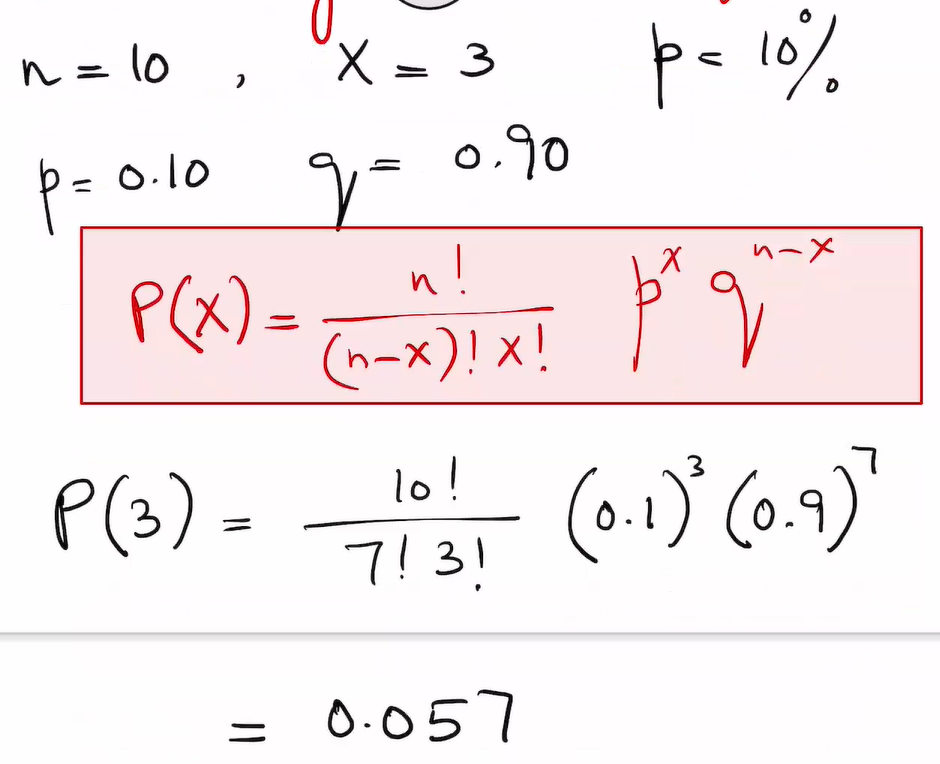 n = 10 , X = 3 p = 10%
p = 0.10 q = 0.90
P(X) = n! / (n-x)! x! p^x q^(n-x)
P(3) = 10! / 7! 3! (0.1)^3 (0.9)^7
= 0.057